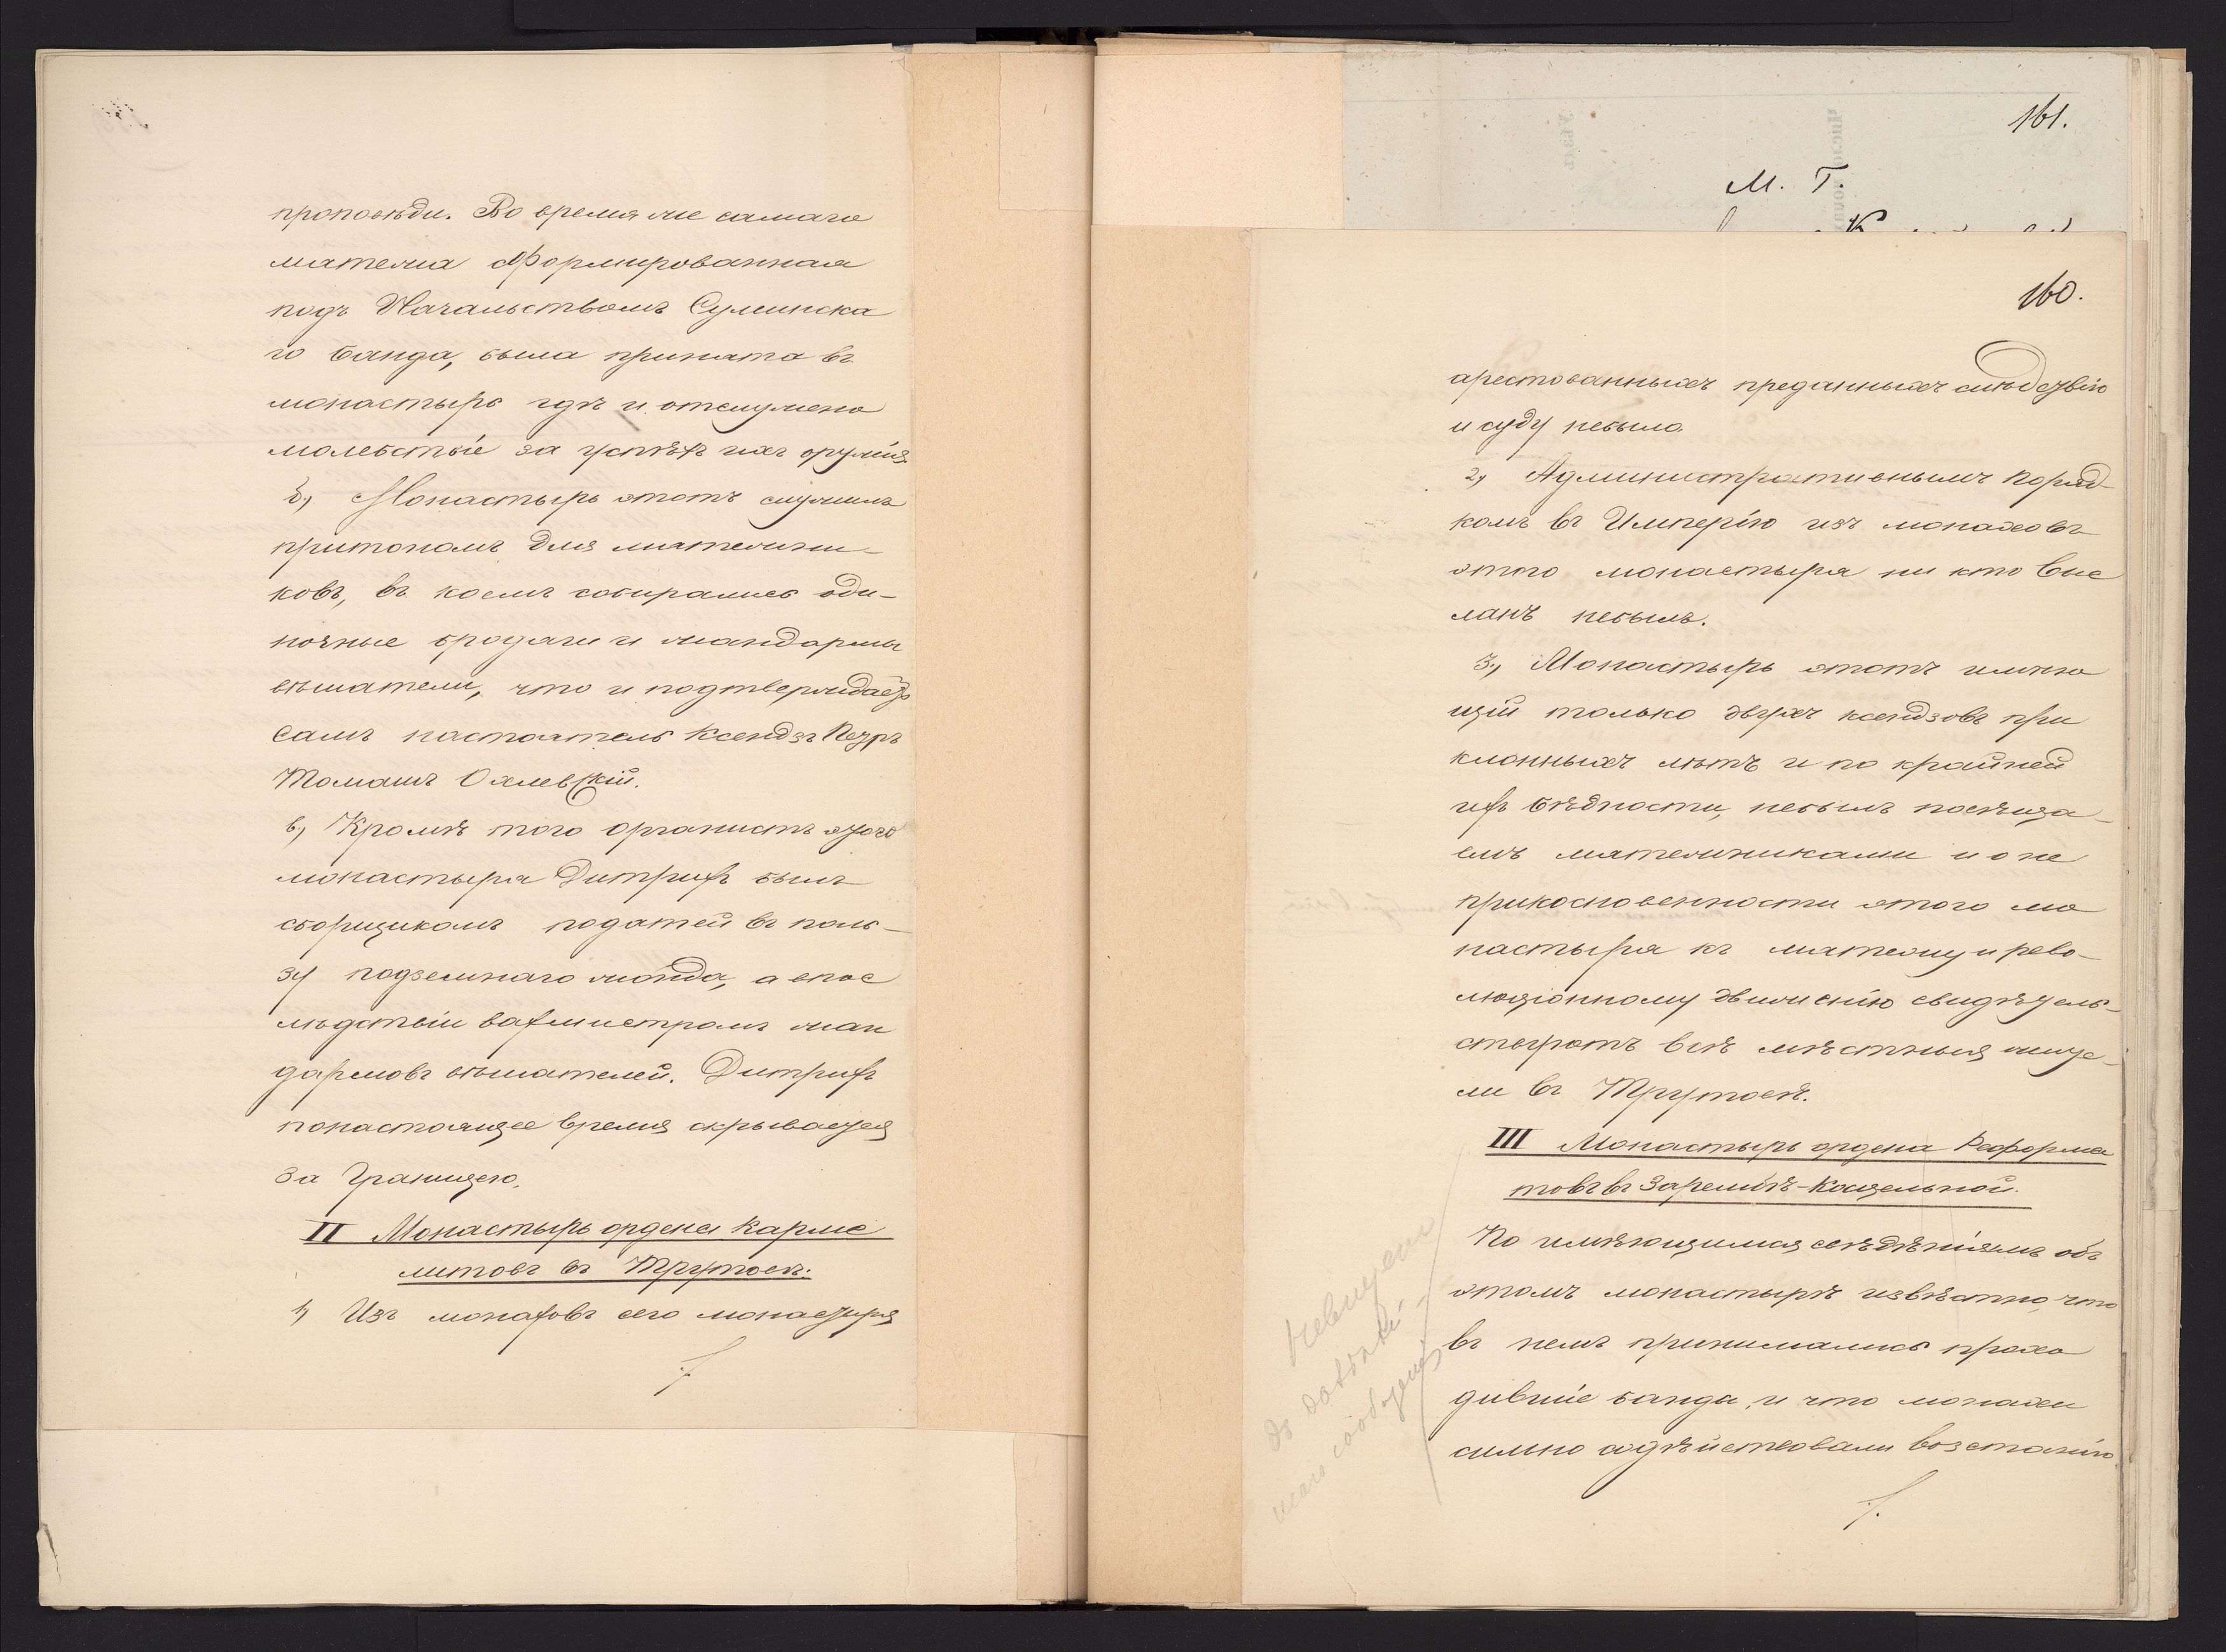 проповѣди. Во время же самаго
мятежа сформированная
подъ Начальствомъ Сулинска
го банда, была принята въ
монастырь гдѣ и отслужено
молебствіе за успѣхъ ихъ оружія.
б, Монастырь этотъ служилъ
притономъ для мятежни-
ковъ, въ коемъ собирались оди-
ночные бродяги и жандармы
вѣшатели, что и подтверждаетъ
самъ настоятель Ксендзъ Петръ
Томашъ Охлевскій.
в, Кромѣ того органистъ этого
монастыря Дитрихъ былъ
сборщикомъ податей въ поль-
зу подземнаго жонда, а впос
лѣдствіи вахмистромъ жан
дармовъ вѣшателей. Дитрихъ
понастоящее время скрывается
за Границею.
II Монастырь ордена Карме
литовъ въ Трутовѣ.
1, Изъ монаховъ сего монастыря
161.
М. Г.
160.
арестованныхъ преданныхъ слѣдствію
и суду небыло.
2, Административнымъ поряд-
комъ въ Имперію изъ монаховъ
этого монастыря ни кто выс
ланъ небылъ.
3, Монастырь этотъ имѣю
щій только двухъ ксендзовъ при
клонныхъ лѣтъ и по крайней
ихъ бѣдности, небылъ посѣща-
емъ мятежниками и о не
прикосновенности этого мо
настыря къ мятежу и рево-
люціонному движенію свидѣтель-
ствуютъ всѣ мѣстныя жите-
ли въ Трутовѣ.
III Монастырь ордена Реформа
товъ въ Зарембѣ-Косцельной.
По имѣющимся свѣдѣніямъ объ
этомъ монастырѣ извѣстно что
въ немъ принимались прохо
дившіе банды, и что монахи
сильно содѣйствовали возстанію